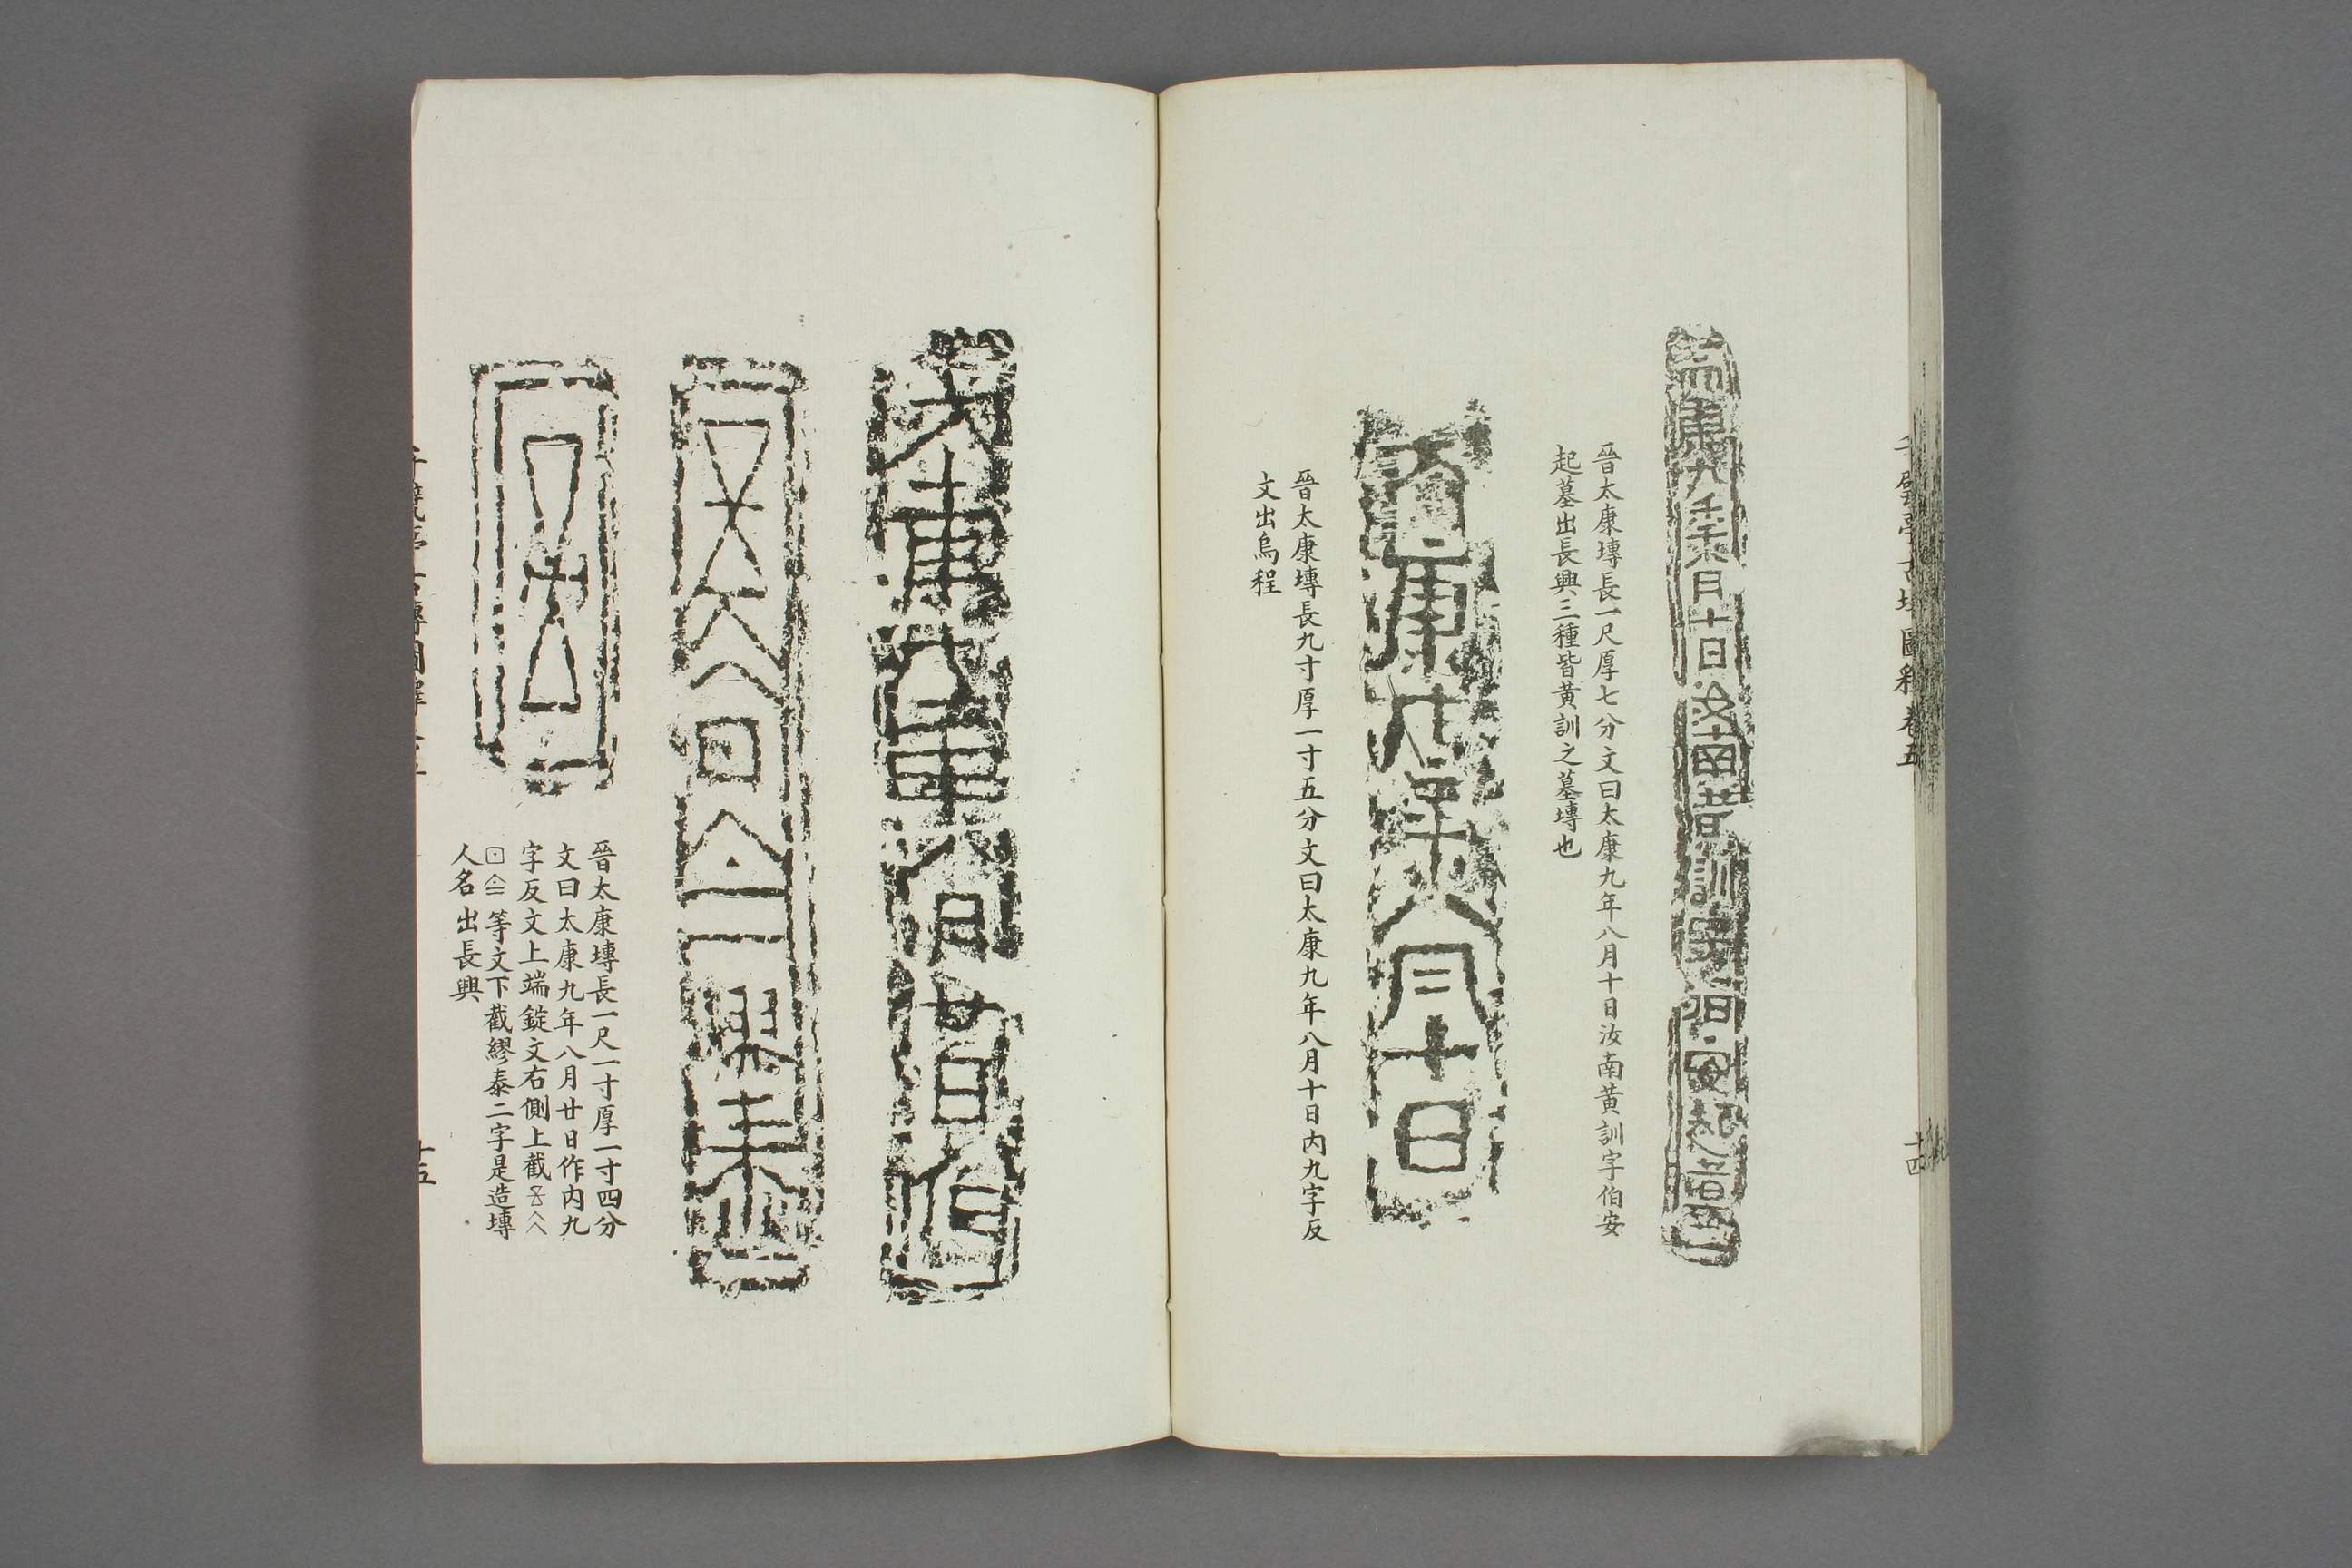 千甓亭古塼圖釋卷五
十四
晉太康塼長一尺厚七分文曰太康九年八月十日汝南黃訓字伯安
起墓出長興三種皆黃訓之墓塼也
太康九年八月十日
晉太康塼長九寸厚一寸五分文曰太康九年八月十日內九字反
文出烏程
晉太康塼長一尺一寸厚一寸四分
文曰太康九年八月廿日作內九
字反文上端錠文右側上截
等文下截繆泰二字是造塼
人名出長興
十五